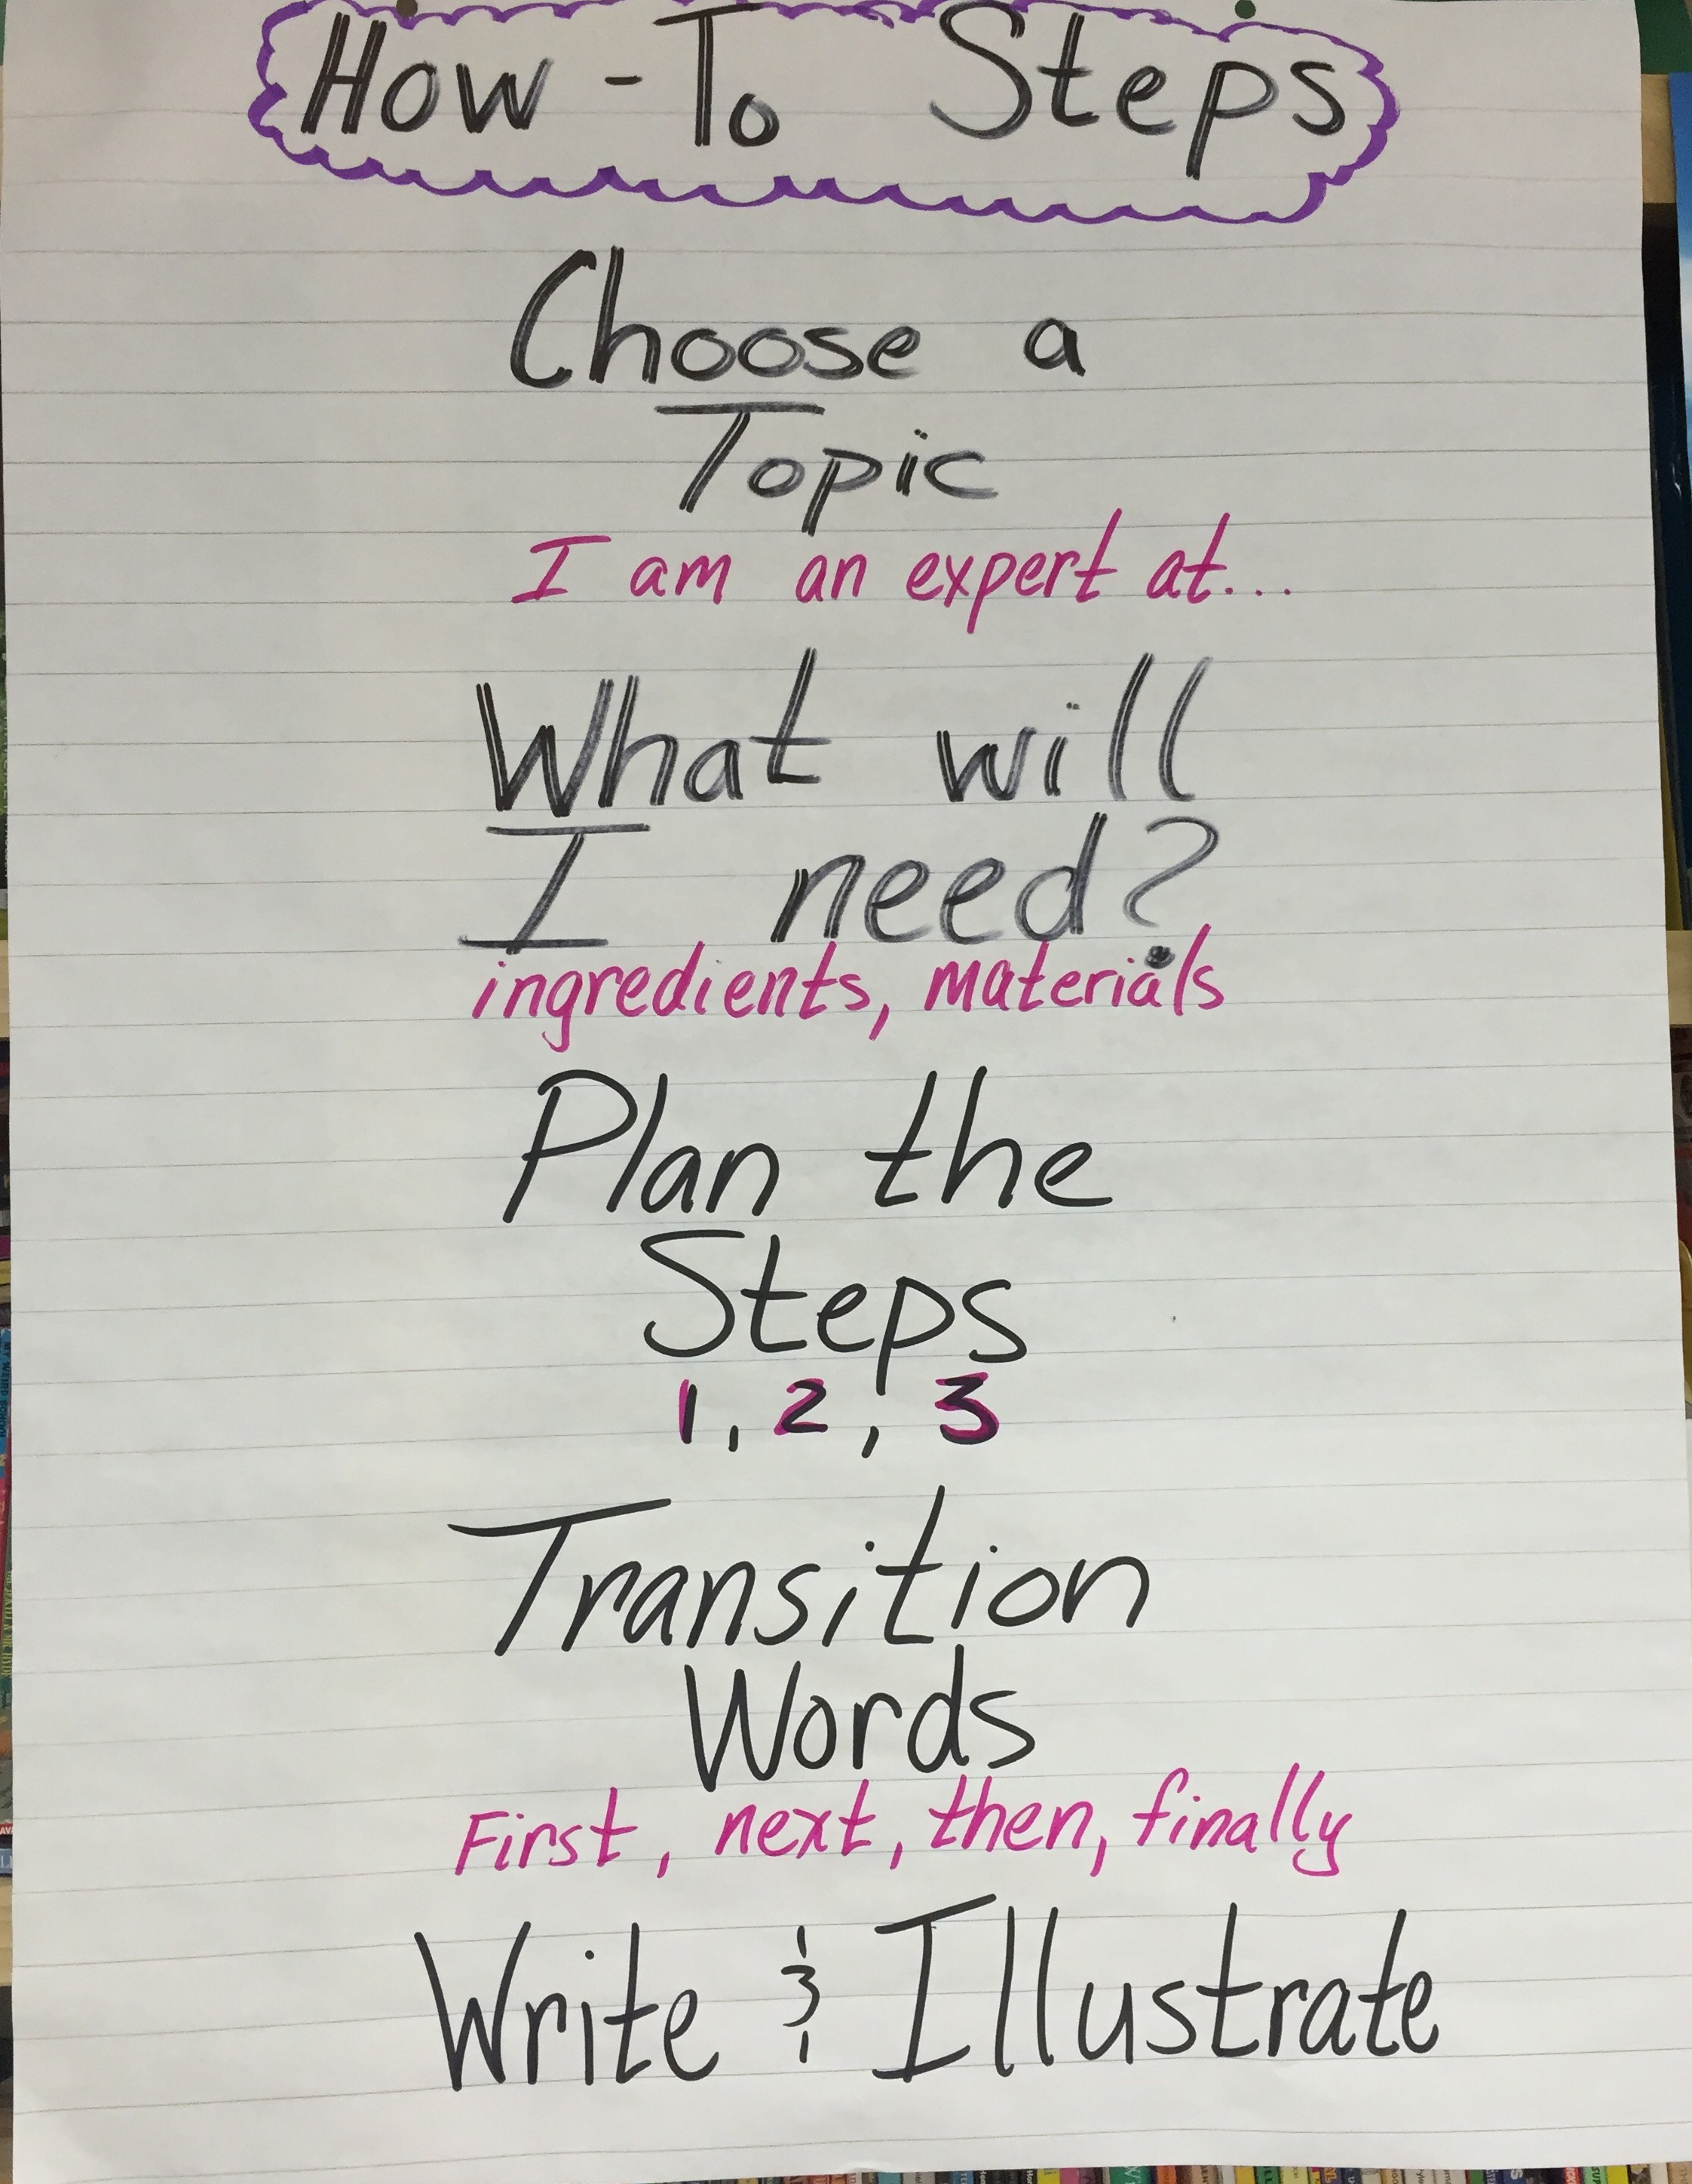 How-To Steps
Choose a
Topic
I am an expert at...
What will
I need?
ingredients, materials
Plan the
Steps
1, 2, 3
Transition
Words
First, next, then, finally
Write & Illustrate